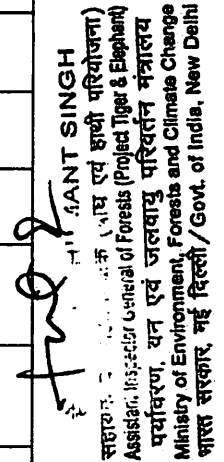 MANT SINGH
बाघ एवं हाथी परियोजना)
Assistant Inspector General of Forests (Project Tiger & Elephant)
पर्यावरण, वन एवं जलवायु परिवर्तन मंत्रालय
Ministry of Environment, Forests and Climate Change
भारत सरकार, नई दिल्ली / Govt. of India, New Delhi